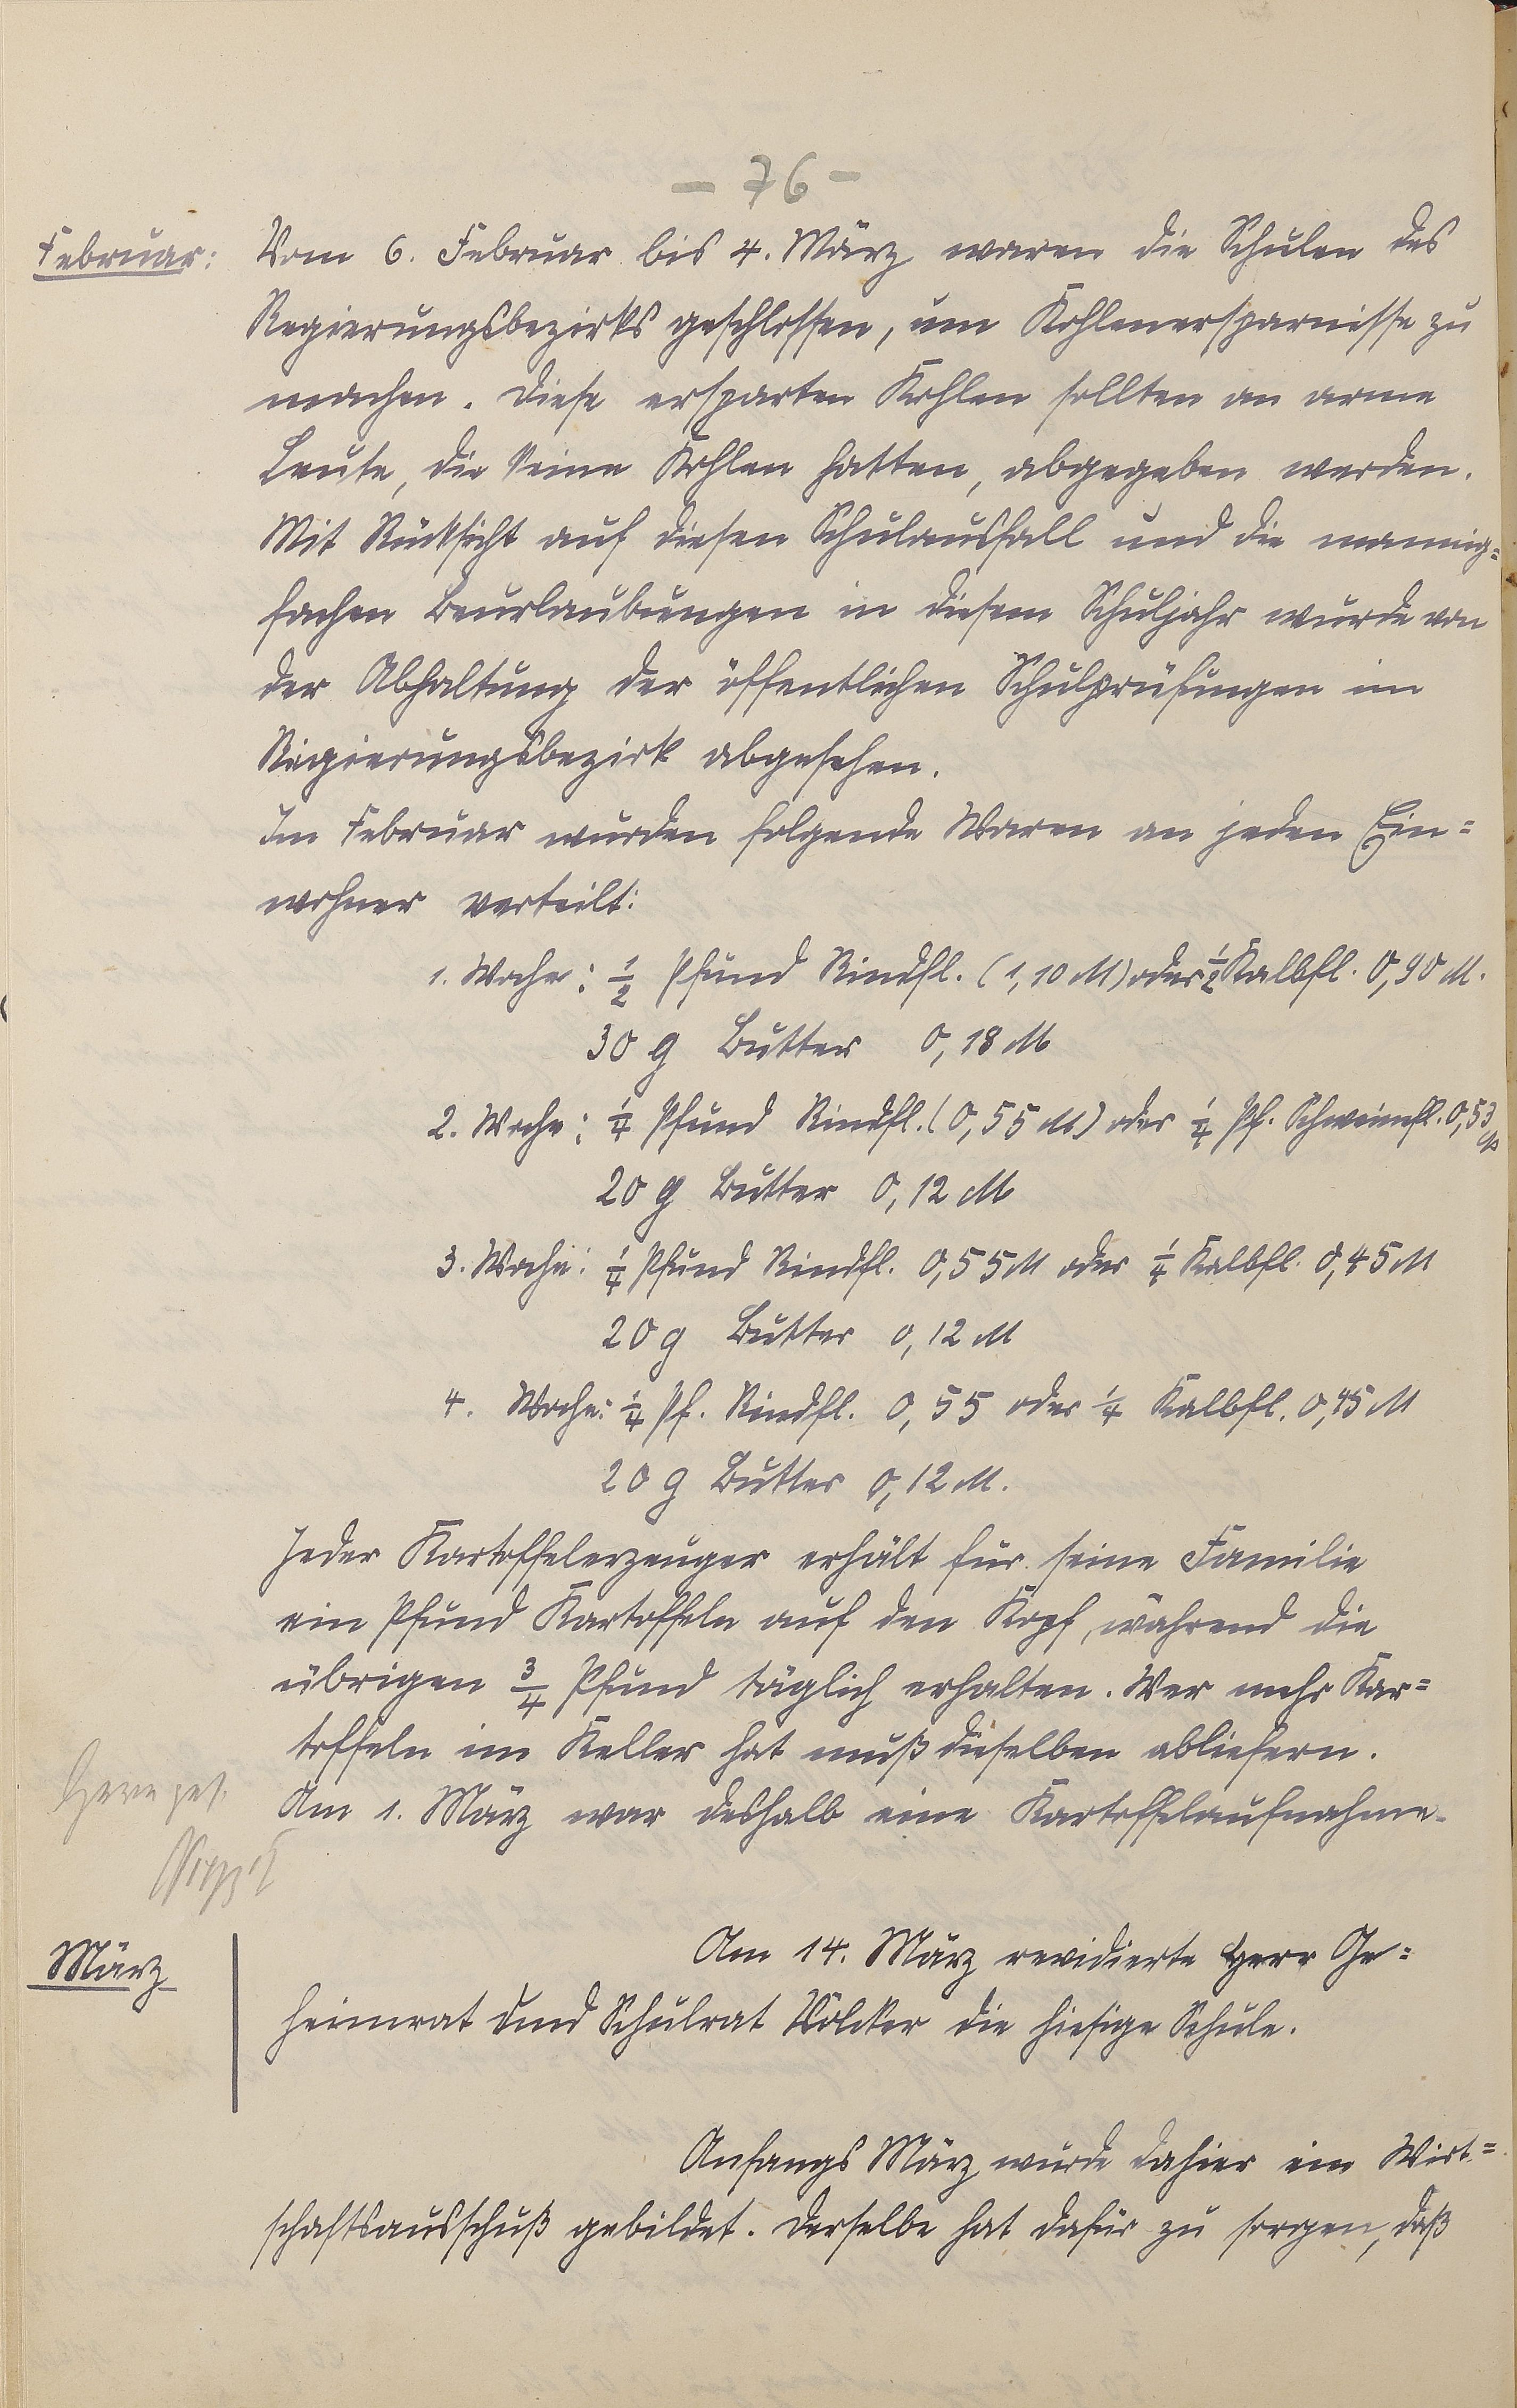 - 76 -
Februar: Vom 6. Februar bis 4. März waren die Schulen des
Regierungsbezirks geschlossen, um Kohlenersparnisse zu
machen. Diese ersparten Kohlen sollten an arme
Leute, die keine Kohlen hatten, abgegeben werden.
Mit Rücksicht auf diesen Schulausfall und die mannig=
fachen Beurlaubungen in diesem Schuljahr wurde von
der Abhaltung der öffentlichen Schulprüfungen im
Regierungsbezirk abgesehen.
Im Februar wurden folgende Waren an jeden Ein=
wohner verteilt:
1. Woche: 1/2 Pfund Rindfl. (1,10 M) oder 1/2 Kalbfl. 0,90 M.
30 g Butter 0,18 M
2. Woche: 1/4 Pfund Rindfl. (0,55 M) oder 1/4 Pf. Schweinefl. 0,53 M
20 g Butter 0,12 M
3. Woche: 1/4 Pfund Rindfl. 0,55 M oder 1/4 Kalbfl. 0,45 M
20 g Butter 0,12 M
4. Woche: 1/4 Pf. Rindfl. 0,55 oder 1/4 Kalbfl. 0,45 M
20 g Butter 0,12 M.
Jeder Kartoffelerzeuger erhält für seine Familie
ein Pfund Kartoffeln auf den Kopf, während die
übrigen 3/4 Pfund täglich erhalten. Wer mehr Kar=
toffeln im Keller hat muß dieselben abliefern.
Am 1. März war deshalb eine Kartoffelaufnahme.
März
Am 14. März revidierte Herr Ge=
heimrat und Schulrat Völcker die hiesige Schule.
Anfangs März wurde dahier ein Wirt=
schaftsausschuß gebildet. Derselbe hat dafür zu sorgen, daß